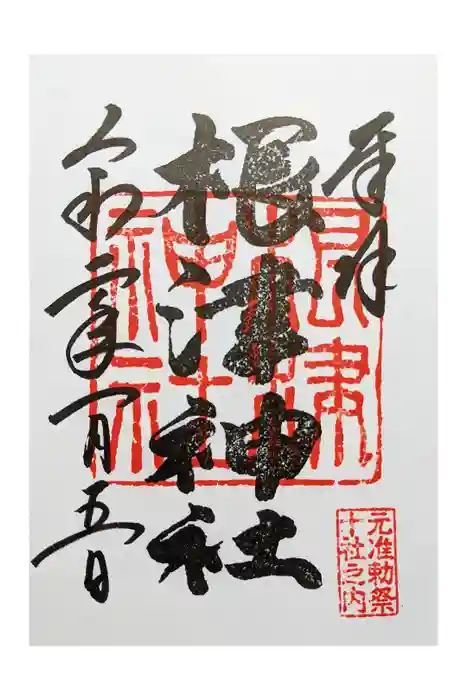 奉拝
根津神社
令和二年一月五日
根津
神社
元准勅祭
十社之内